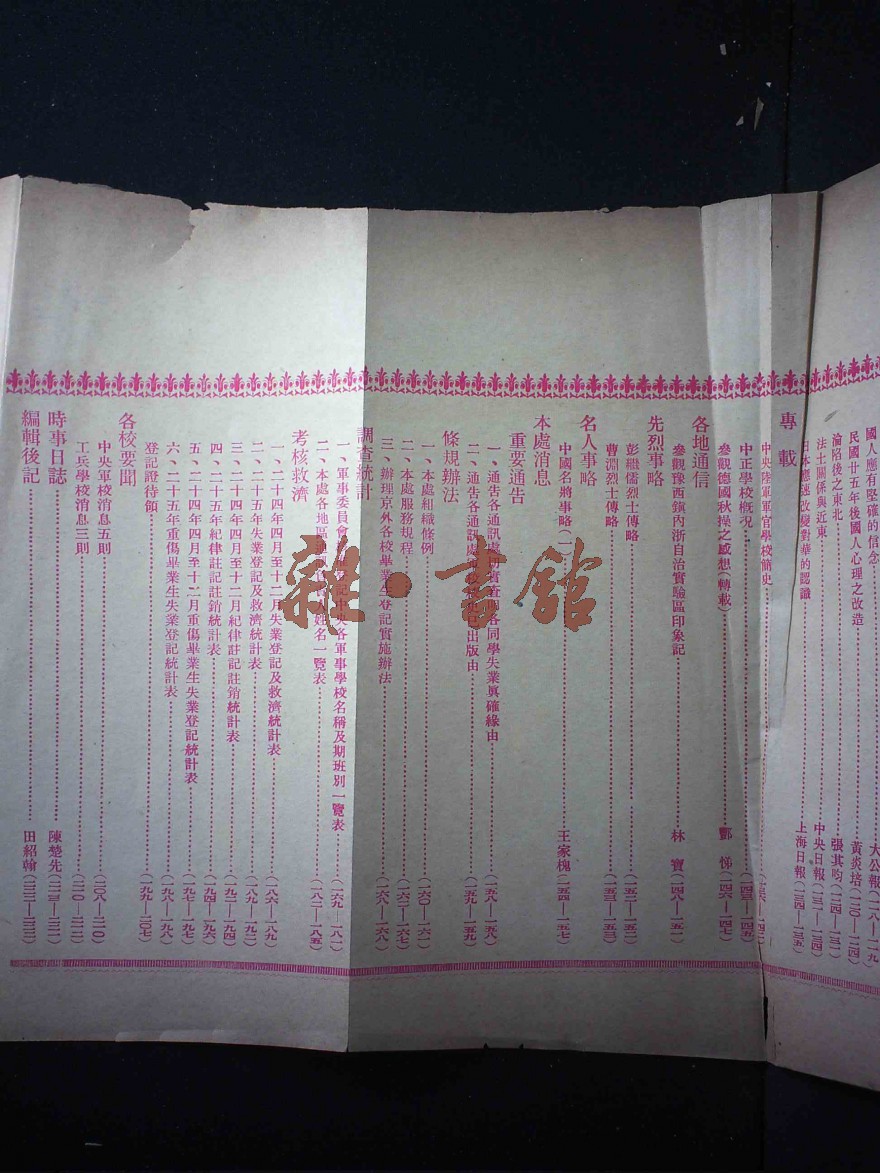 國人應有堅確的信念 大公報(一一八—一一九
民國廿五年後國人心理之改造 黃炎培(一二〇—一二四)
淪陷後之東北 張其昀(一二四—一三一)
法土關係與近東 中央日報(一三一—一三四)
日本應速改變對華的認識 上海日報(一三四—一三五)
專載
中央陸軍軍官學校簡史
中正學校概况
參觀德國秋操之感想(轉載) 酆悌(一四六—一四七)
各地通信
參觀豫西鎮內淅自治實驗區印象記 林寶(一四八—一五一)
先烈事略
彭繼儒烈士傳略
曹淵烈士傳略
名人事略
中國名將事略(一) 王家槐(一五四—一五七)
本處消息
重要通告
一、通告各通訊處切實查明各同學失業眞確緣由(一五八—一五八)
二、通告各通訊處 出版由(一五九—一五九)
條規辦法
一、本處組織條例(一六〇—一六一)
二、本處服務規程(一六二—一六七)
三、辦理京外各校畢業生登記實施辦法(一六八—一六八)
調查統計
一、軍事委員會 中央各軍事學校名稱及期班別一覽表(一六九—一八一)
二、本處各地區通訊 姓名一覽表(一八二—一八五)
考核救濟
一、二十四年四月至十二月失業登記及救濟統計表(一八六—一八九)
二、二十五年失業登記及救濟統計表(一八九—一九二)
三、二十四年四月至十二月紀律註記註銷統計表(一九二—一九四)
四、二十五年紀律註記註銷統計表(一九四—一九六)
五、二十四年四月至十二月重傷畢業生失業登記統計表(一九七—一九七)
六、二十五年重傷畢業生失業登記統計表(一九八—一九八)
登記證待領(一九九—二〇七)
各校要聞
中央軍校消息五則(二〇八—二一〇)
工兵學校消息三則
時事日誌 陳楚先
編輯後記 田紹翰
雜·書館